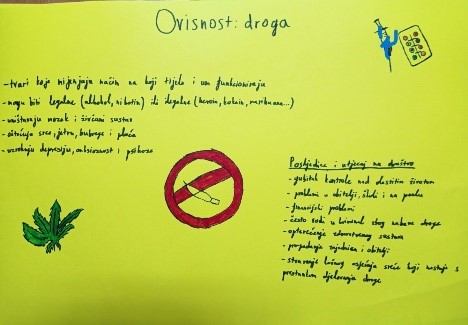 Ovisnost: droga
-tvari koje mijenjaju način na koji tijelo i um funkcioniraju
-mogu biti legalne (alkohol, nikotin) ili ilegalne (heroin, kokain, marihuana...)
-uništavaju mozak i živčani sustav
-oštećuju srce, jetru, bubrege i pluća
-uzrokuju depresiju, anksioznost i psihozu
Posljedice i utjecaj na društvo
-gubitak kontrole nad vlastitim životom
-problemi u obitelji, školi i na poslu
-financijski problemi
-često vodi u kriminal zbog nabave droge
-opterećenje zdravstvenog sustava
-propadanje zajednice i obitelji
-stvaranje lažnog osjećaja sreće koji nestaje s
prestankom djelovanja droge